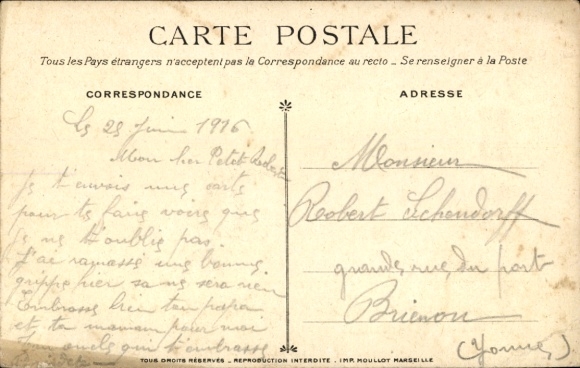 CARTE POSTALE
Tous les Pays étrangers n'acceptent pas la Correspondance au recto _ Se renseigner à la Poste
CORRESPONDANCE
ADRESSE
Le 25 Juin 1916
Mon cher Petit Robert
Je t'envois une carte
pour te faire voire que
je ne t'oublie pas.
J'ai ramassé une bonne
grippe hier sa ne sera rien
Embrasse bien ton papa
et ta maman pour moi
Ton oncle qui t'embrasse
Monsieur
Robert Schendorff
grande rue du port
Brienon
(Yonne)
TOUS DROITS RÉSERVÉS _ REPRODUCTION INTERDITE . IMP. MOULLOT MARSEILLE